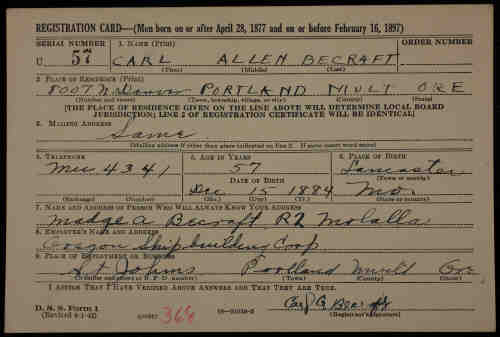 REGISTRATION CARD—(Men born on or after April 28, 1877 and on or before February 16, 1897)
SERIAL NUMBER 1. NAME (Print) ORDER NUMBER
U 57 CARL ALLEN BECRAFT
(First) (Middle) (Last)
2. PLACE OF RESIDENCE (Print)
8007 N. PORTLAND MULT ORE
(Number and street) (Town, township, village, or city) (County) (State)
[THE PLACE OF RESIDENCE GIVEN ON THE LINE ABOVE WILL DETERMINE LOCAL BOARD
JURISDICTION; LINE 2 OF REGISTRATION CERTIFICATE WILL BE IDENTICAL]
3. MAILING ADDRESS
Same
[Mailing address if other than place indicated on line 2. If same insert word same]
4. TELEPHONE 5. AGE IN YEARS 6. PLACE OF BIRTH
4341 57 Lancaster
DATE OF BIRTH (Town or county)
Dec 15 1884 Mo.
(Exchange) (Number) (Mo.) (Day) (Yr.) (State or country)
7. NAME AND ADDRESS OF PERSON WHO WILL ALWAYS KNOW YOUR ADDRESS
Madge A Becraft R2 Molalla
8. EMPLOYER'S NAME AND ADDRESS
Oregon Shipbuilding Corp.
9. PLACE OF EMPLOYMENT OR BUSINESS
St Johns Portland Mult Ore
(Number and street or R. F. D. number) (Town) (County) (State)
I AFFIRM THAT I HAVE VERIFIED ABOVE ANSWERS AND THAT THEY ARE TRUE.
D. S. S. Form 1 Carl A Becraft
(Revised 4-1-42) (over) 368 (Registrant's signature)